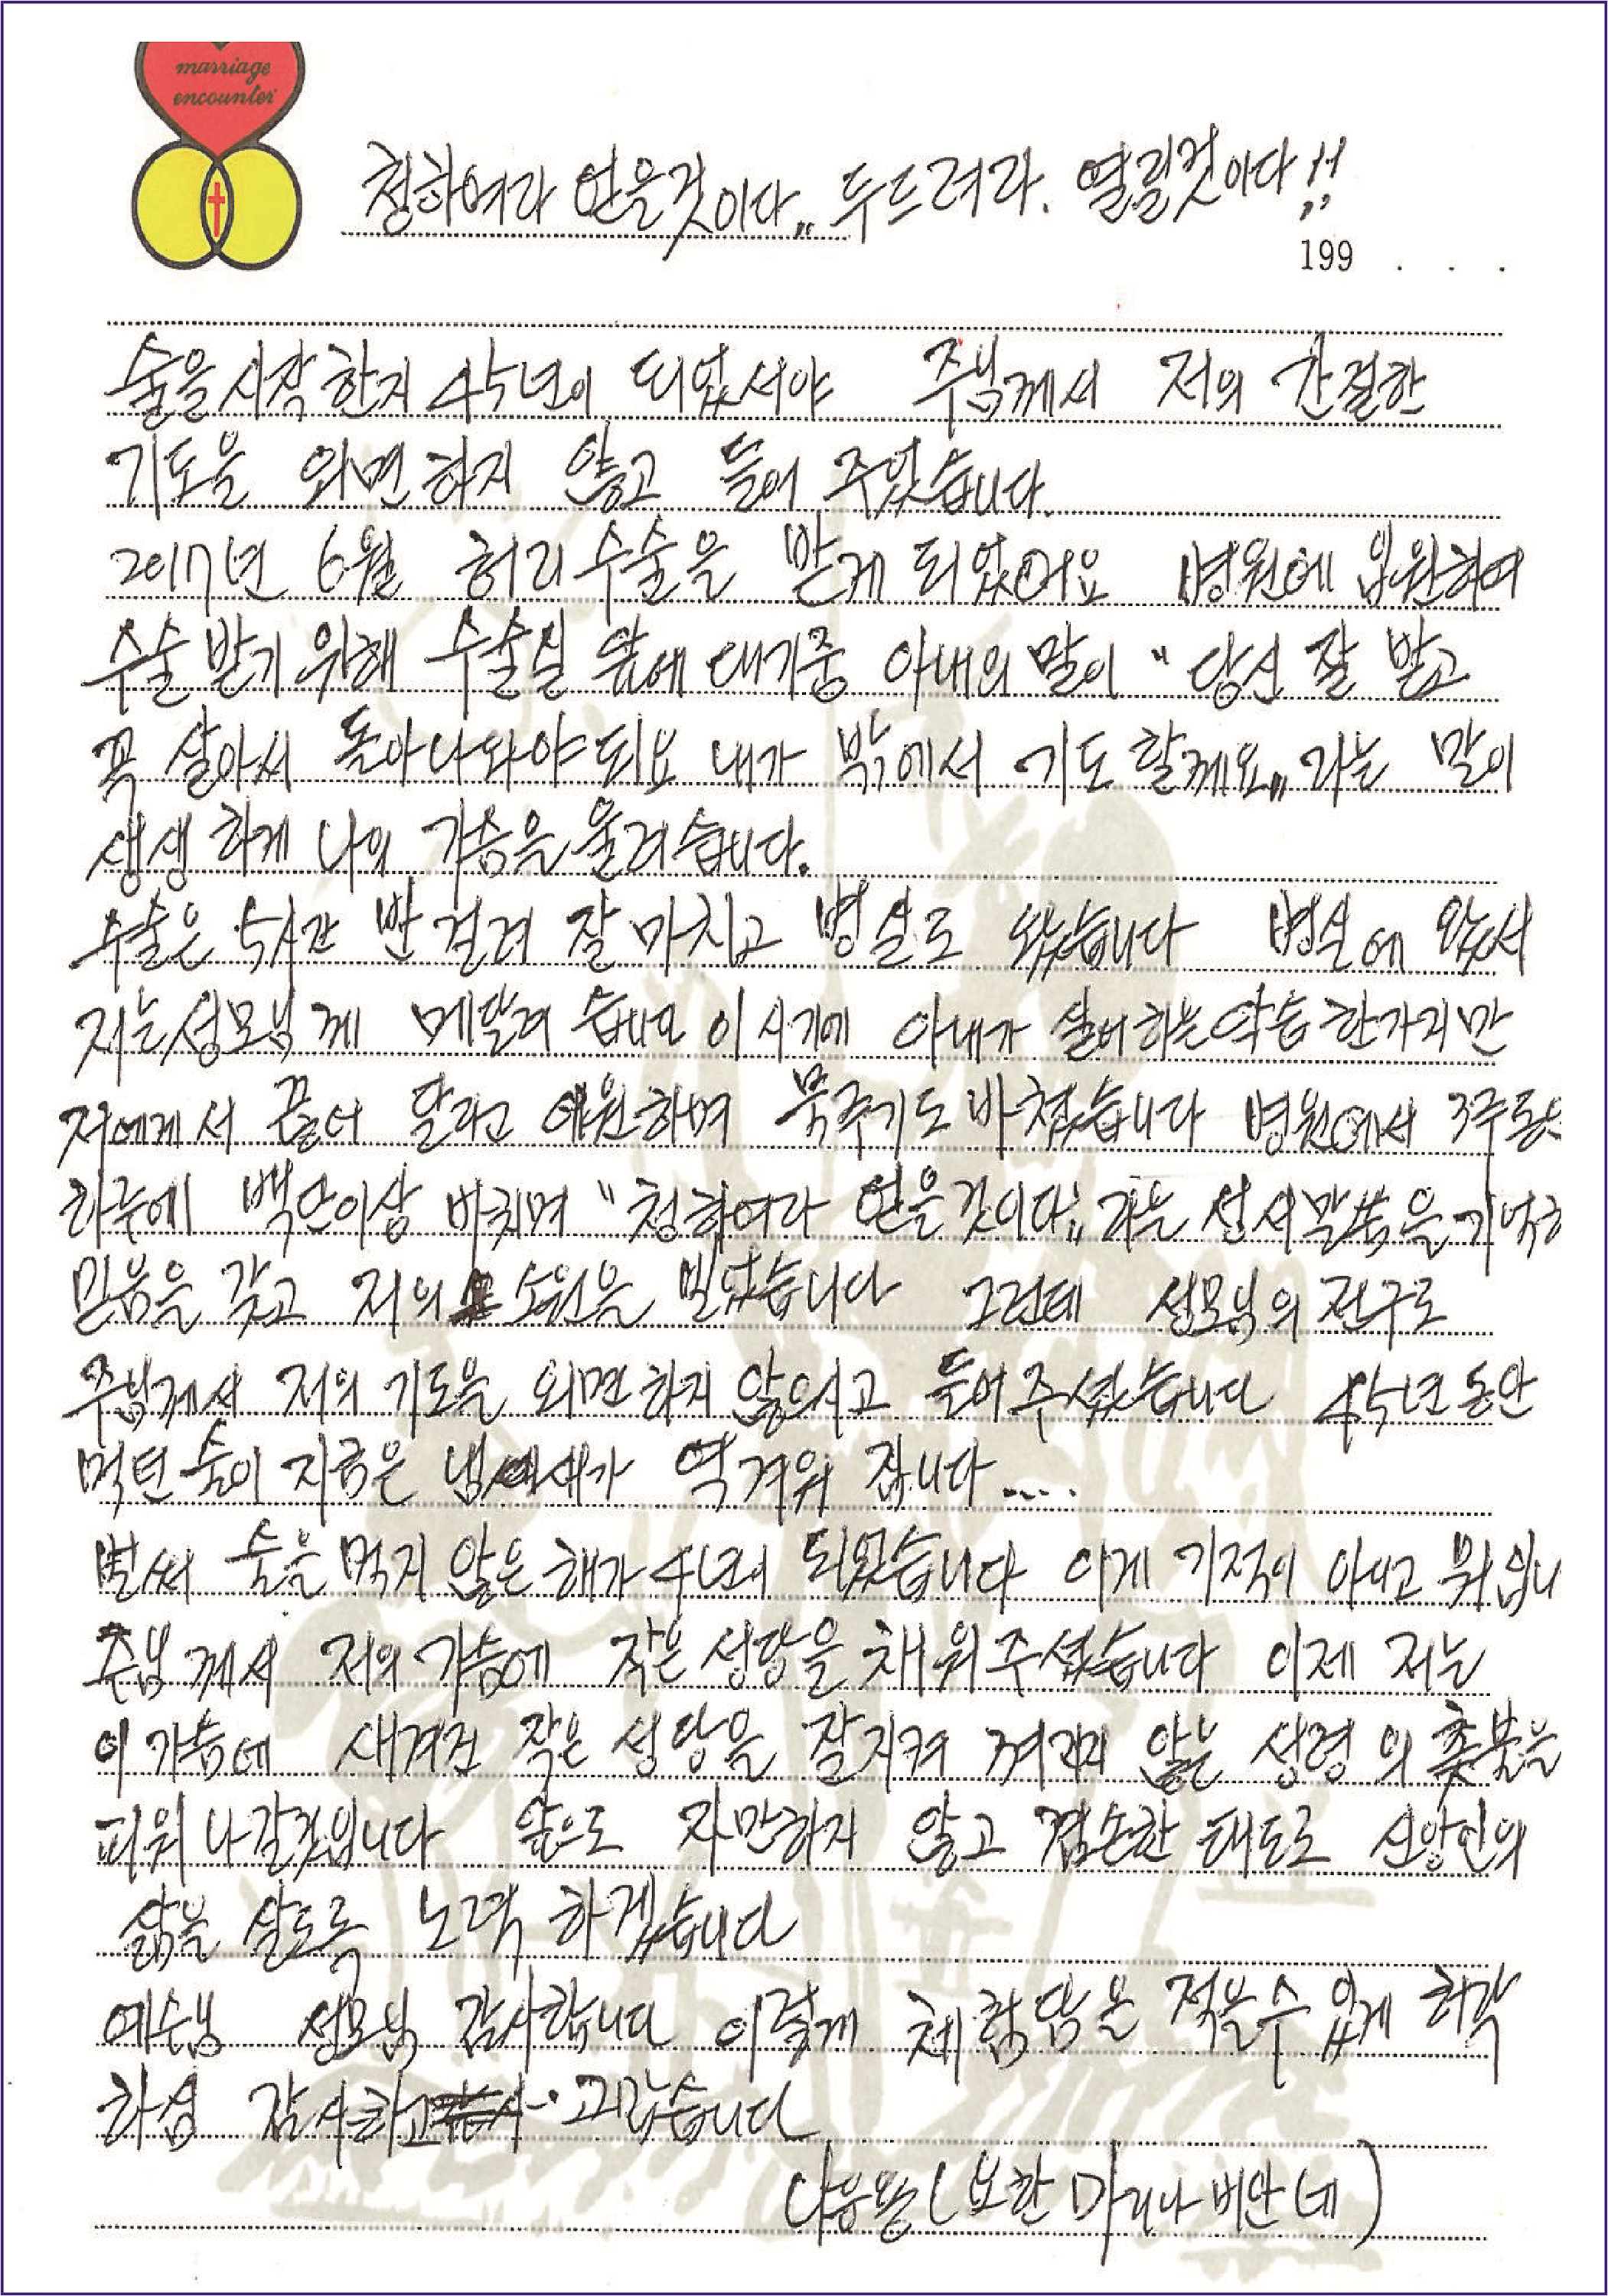 marriage
encounter
청하여라 얻을것이다,, 두드려라. 열릴것이다!!
199 . . .
술을 시작한지 45년이 되었서야 주님께서 저의 간절한
기도을 외면하지 않고 들어 주었습니다.
2017년 6월 허리수술을 받게 되었어요 병원에 입원하여
수술받기위해 수술실 앞에 대기중 아내의 말이 "당신 잘 받고
꼭 살아서 돌아나와야되요 내가 밖에서 기도할께요,, 라는 말이
생생하게 나의 가슴은 울려습니다.
수술은 5시간 반 걸려 잘 마치고 병실로 왔습니다 병실에 와서
저는 성모님께 메달려 습니다 이 시기에 아내가 싫어하는 악습 한가지만
저에게서 끊어 달라고 애원하며 묵주기도 바쳤습니다 병원에서 3주동안
하루에 백단이상 바치며 "청하여라 얻을것이다,, 라는 성서말씀을
믿음을 갖고 저의 소원을 빌었습니다 그런데 성모님의 전구로
주님께서 저의 기도을 외면하지 않으시고 들어주셨습니다 45년동안
먹던 술이 지금은 역겨워 집니다....
벌써 술을 먹지 않은 해가 4년이 되었습니다 이게 기적이 아니고 뭐입니
주님께서 저의가슴에 작은 성당을 채워주셨습니다 이제 저는
이 가슴에 새겨진 작은 성당을 잘지켜 꺼지지 않는 성령의 촛불을
피워 나갈것입니다 앞으로 자만하지 않고 겸손한 태도로 신앙인의
삶을 살도록 노력 하겠습니다
예수님 성모님 감사합니다 이렇게 체험담을 적을수 있게 허락
하심 감사하고 고맙습니다
(요한 마리나 비안네)